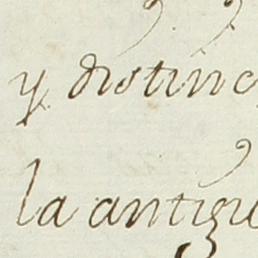 y distinc
la antigu